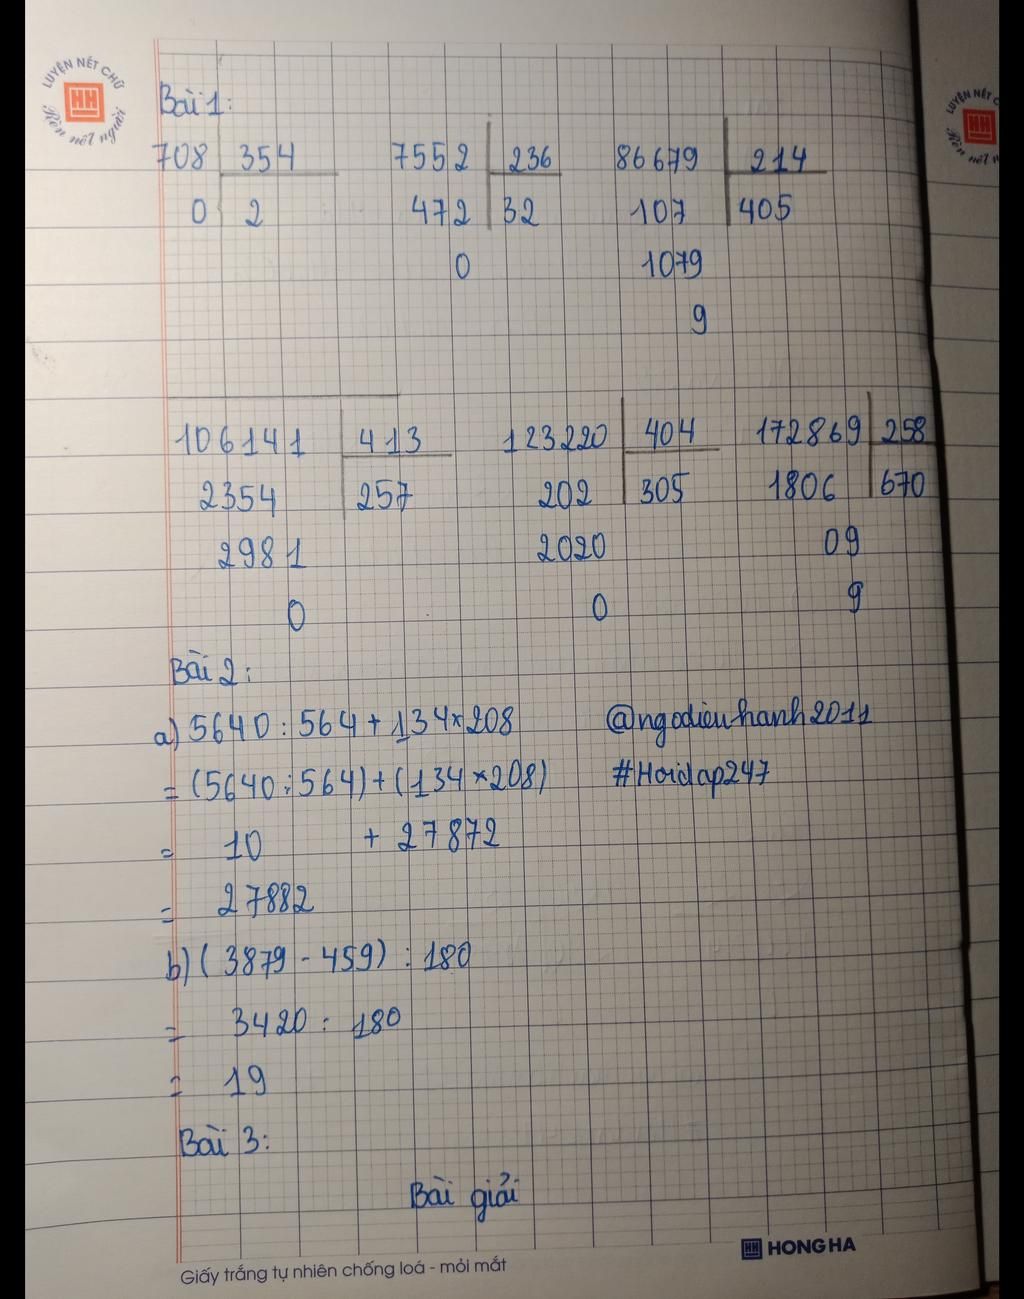 LUYỆN NÉT CHỮ
HH
Rèn nết người
LUYỆN NÉT C
HH
Bài 1:
708 354 7552 236 86679 214
0 2 472 32 107 405
0 1079
9
106141 413 123220 404 172869 258
2354 257 202 305 1806 670
2981 2020 09
0 0 9
Bài 2:
a) 5640 : 564 + 134 × 208 @ngodieuhanh2011
= (5640 : 564) + (134 × 208) #Hoidap247
= 10 + 27872
= 27882
b) ( 3879 - 459) : 180
= 3420 : 180
= 19
Bài 3:
Bài giải
HH HONG HA
Giấy trắng tự nhiên chống loá - mỏi mắt